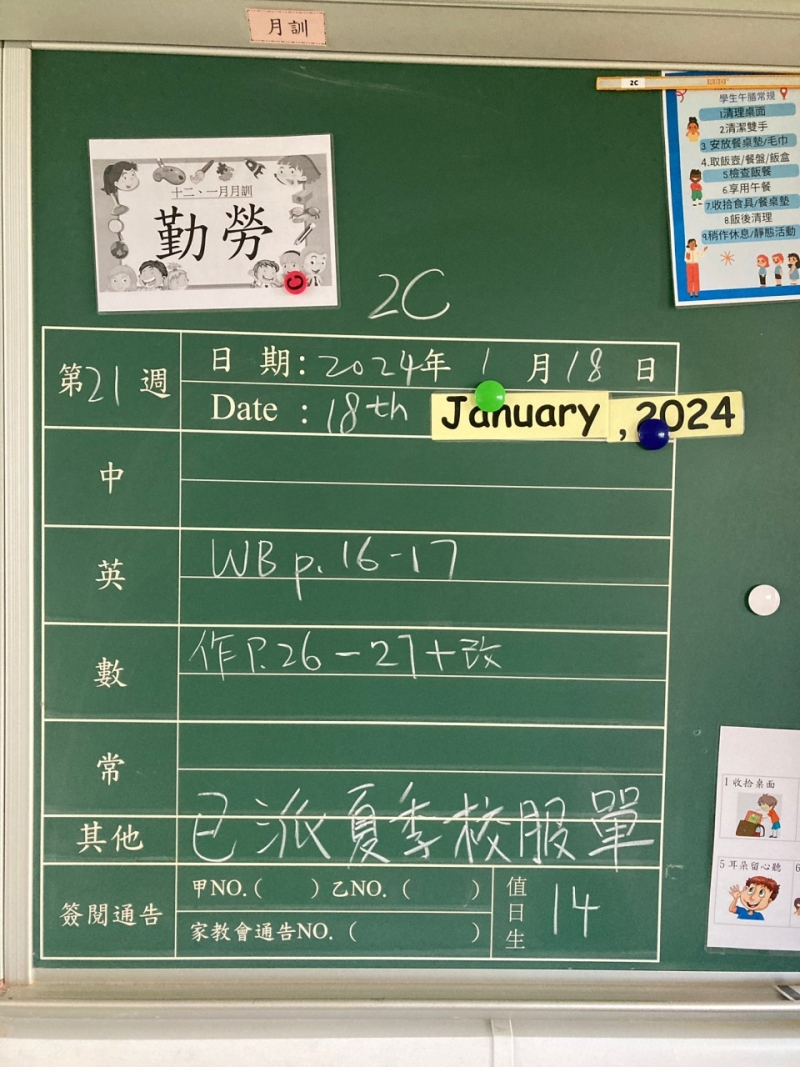 月訓
2C
學生午膳常規
1清理桌面
2清潔雙手
3.安放餐桌墊/毛巾
4.取飯壺/餐盤/飯盒
5檢查飯餐
6.享用午餐
7.收拾食具/餐桌墊
8.飯後清理
9.稍作休息/靜態活動
十二、一月月訓
勤勞
2C
第21週
日 期:2024年 1 月18 日
Date : 18th January , 2024
中
英
WB p. 16-17
數
作P.26-27+改
常
其他
已派夏季校服單
簽閱通告
甲NO.( ) 乙NO. ( )
家教會通告NO. ( )
值日生
14
1 收拾桌面
5 耳朵留心聽
6